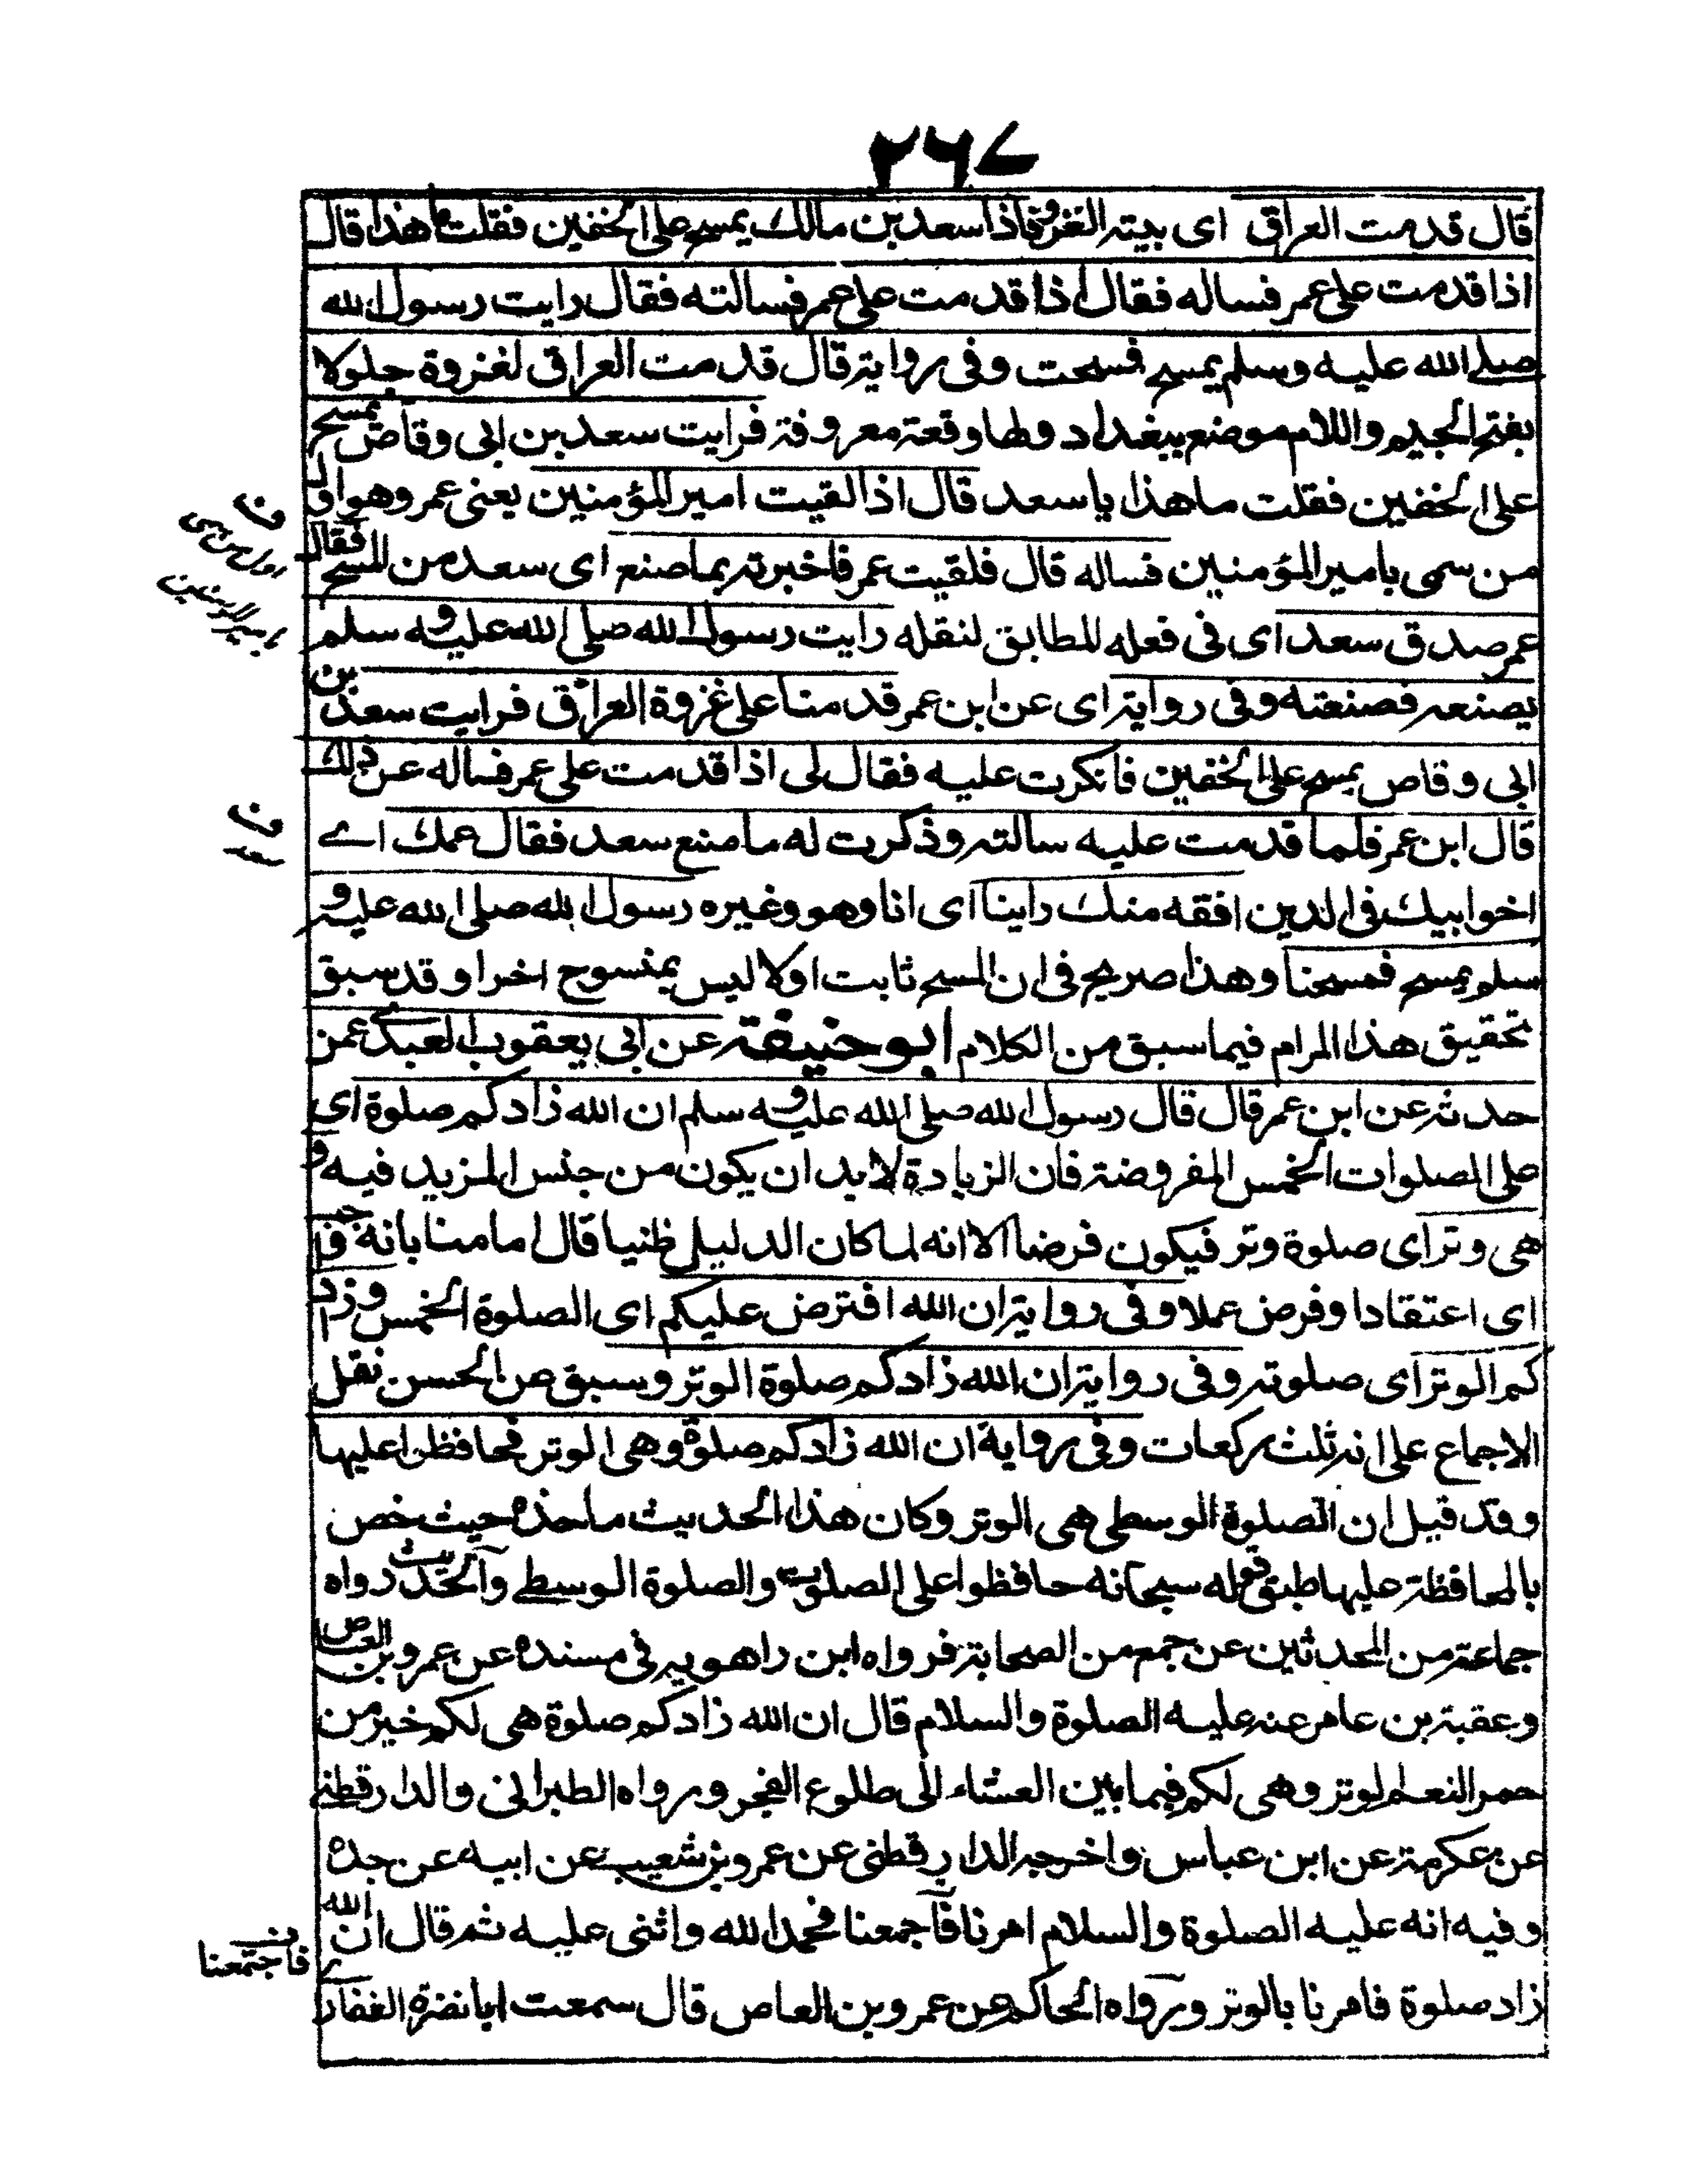 ٢٦٧
قال قدمت العراق اى بيته الغزوة فاذا سعد بن مالك يمسح على الخفين فقلت ما هذا قال
اذا قدمت على عمر فساله فقال اذا قدمت على عمر فسالته فقال رايت رسول الله
صلے الله عليه وسلم يمسح فمسحت وفى رواية قال قدمت العراق لغزوة جلولا
بفتح الجيم واللام موضع ببغداد ولها وقعة معروفة فرايت سعد بن ابى وقاص يمسح
على الخفين فقلت ما هذا يا سعد قال اذا لقيت امير المؤمنين يعنى عمر وهو اول
من سمى بامير المؤمنين فساله قال فلقيت عمر فاخبرته بما صنع اى سعد من المسح فقال
عمر صدق سعد اى فى فعله المطابق لنقله رايت رسول الله صلى الله عليه و سلم
يصنعه فصنعته وفى رواية اى عن ابن عمر قدمنا على غزوة العراق فرايت سعد بن
ابى وقاص يمسح على الخفين فانكرت عليه فقال لى اذا قدمت على عمر فساله عن ذلك
قال ابن عمر فلما قدمت عليه سالته وذكرت له ما صنع سعد فقال عمك اے
اخو ابيك فى الدين افقه منك راينا اى انا وهو وغيره رسول الله صلى الله عليه و
سلم يمسح فمسحنا وهذا صريح فى ان المسح ثابت اولا ليس بمنسوح اخرا وقد سبق
تحقيق هذا المرام فيما سبق من الكلام ابو حنيفة عن ابى يعقوب العبدے عمن
حدثه عن ابن عمر قال قال رسول الله صلى الله عليه و سلم ان الله زادكم صلوة اى
على الصلوات الخمس المفروضة فان الزيادة لابد ان يكون من جنس المزيد فيه و
هى وتر اى صلوة وتر فيكون فرضا الا انه لما كان الدليل ظنيا قال امامنا بانه واجب
اى اعتقادا وفرض عملا وفى رواية ان الله افترض عليكم اى الصلوة الخمس وزاد
كم الوتر اى صلوته وفى رواية ان الله زادكم صلوة الوتر وسبق عن الحسن نقل
الاجماع على انه ثلث ركعات وفى رواية ان الله زادكم صلوة وهى الوتر فحافظوا عليها
وقد قيل ان الصلوة الوسطى هى الوتر وكان هذا الحديث ماخذه حيث خص
بالمحافظة عليها طبق قوله سبحانه حافظوا على الصلوت والصلوة الوسطے والحديث رواه
جماعة من المحدثين عن جمع من الصحابة فرواه ابن راهويه فى مسنده عن عمرو بن العاص
وعقبة بن عامر عنه عليه الصلوة والسلام قال ان الله زادكم صلوة هى لكم خير من
حمر النعم لوتر وهى لكم فيما بين العشاء الى طلوع الفجر ورواه الطبرانى والدارقطنى
عن عكرمة عن ابن عباس واخرجه الدارقطنى عن عمرو بن شعيب عن ابيه عن جده
وفيه انه عليه الصلوة والسلام امرنا فاجمعنا فحمد الله واثنى عليه ثم قال ان الله
زاد صلوة فامرنا بالوتر ورواه الحاكم عن عمرو بن العاص قال سمعت ابا نضرة الغفار
ف اول من سمى بامير المؤمنين
ف سعد
فاجتمعنا